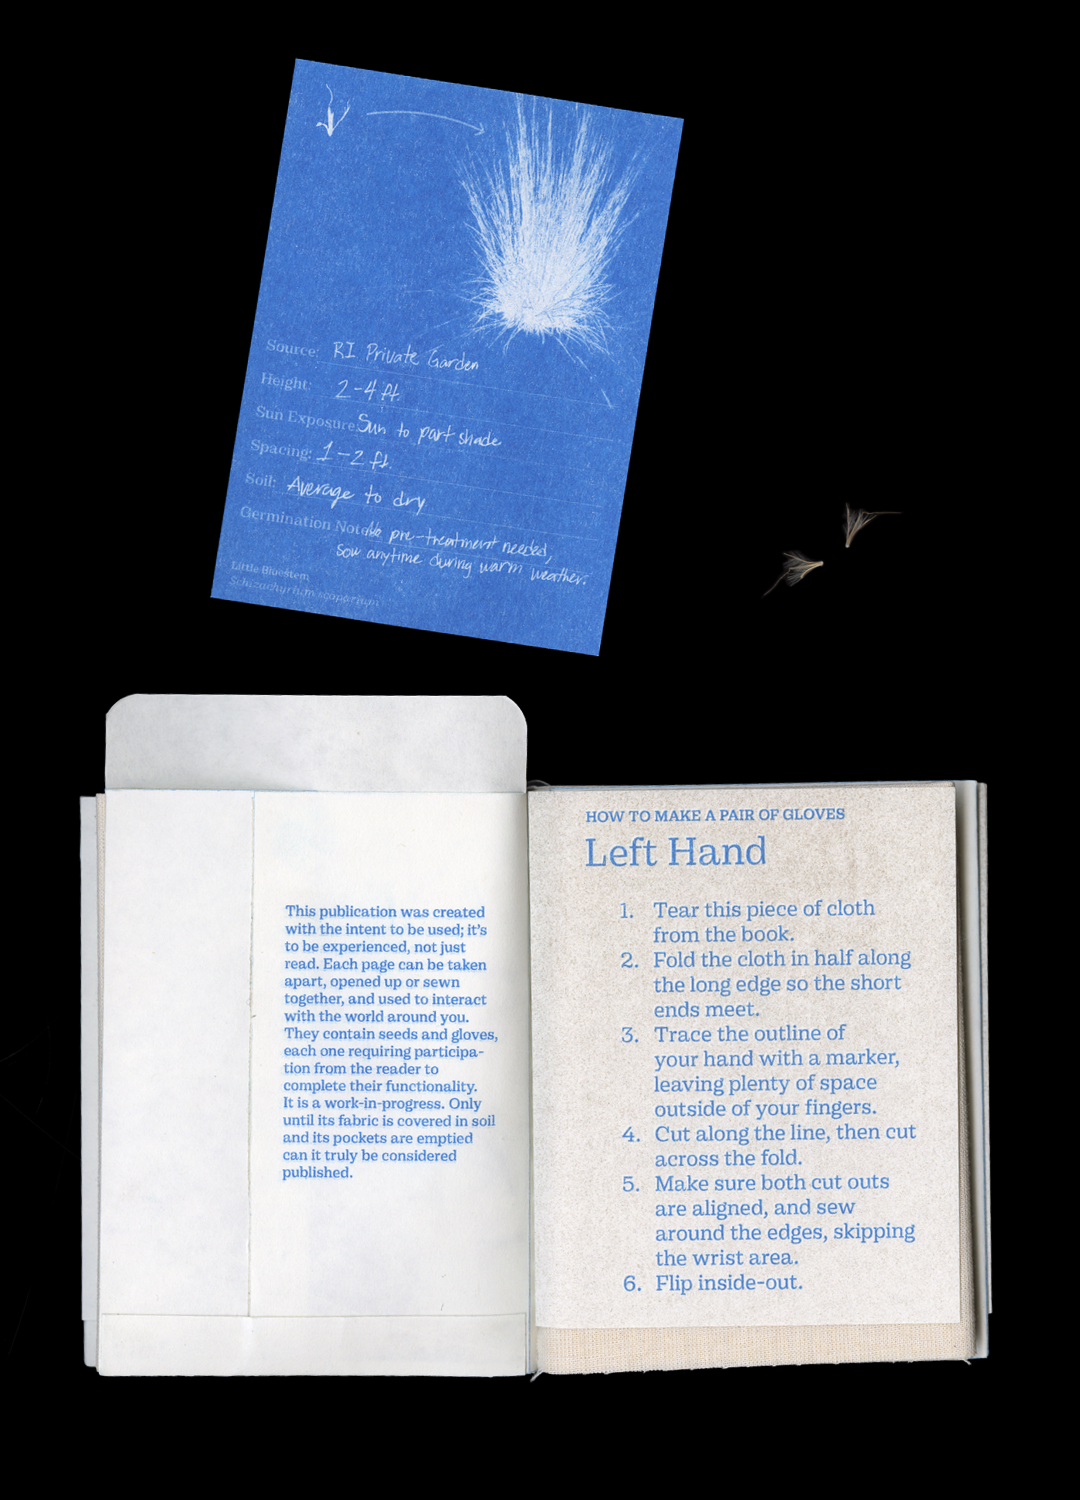 Source: RI Private Garden
Height: 2-4 ft.
Sun Exposure: Sun to part shade
Spacing: 1-2 ft.
Soil: Average to dry
Germination Notes: No pre-treatment needed,
sow anytime during warm weather.
Little Bluestem
Schizachyrium scoparium
This publication was created
with the intent to be used; it's
to be experienced, not just
read. Each page can be taken
apart, opened up or sewn
together, and used to interact
with the world around you.
They contain seeds and gloves,
each one requiring participa-
tion from the reader to
complete their functionality.
It is a work-in-progress. Only
until its fabric is covered in soil
and its pockets are emptied
can it truly be considered
published.
HOW TO MAKE A PAIR OF GLOVES
Left Hand
1. Tear this piece of cloth
from the book.
2. Fold the cloth in half along
the long edge so the short
ends meet.
3. Trace the outline of
your hand with a marker,
leaving plenty of space
outside of your fingers.
4. Cut along the line, then cut
across the fold.
5. Make sure both cut outs
are aligned, and sew
around the edges, skipping
the wrist area.
6. Flip inside-out.